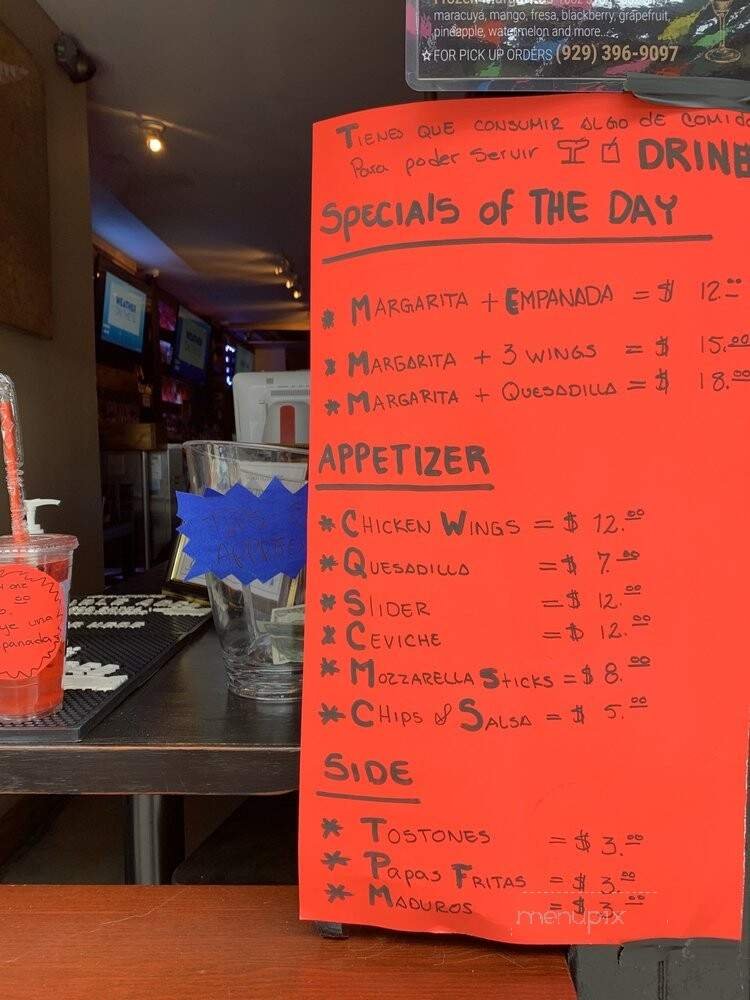 maracuya, mango, fresa, blackberry, grapefruit,
pineapple, watermelon and more...
☆FOR PICK UP ORDERS (929) 396-9097
TIENES QUE CONSUMIR ALGO DE COMIDA
Para poder servir DRINK
SPECIALS OF THE DAY
* MARGARITA + EMPANADA = $ 12.00
* MARGARITA + 3 WINGS = $ 15.00
* MARGARITA + QUESADILLA = $ 18.00
APPETIZER
* CHICKEN WINGS = $ 12.00
* QUESADILLA = $ 7.00
* SLIDER = $ 12.00
* CEVICHE = $ 12.00
* MOZZARELLA STICKS = $ 8.00
* CHIPS & SALSA = $ 5.00
SIDE
* TOSTONES = $ 3.00
* Papas FRITAS = $ 3.00
* MADUROS = $ 3.00
WEATHER
menupix